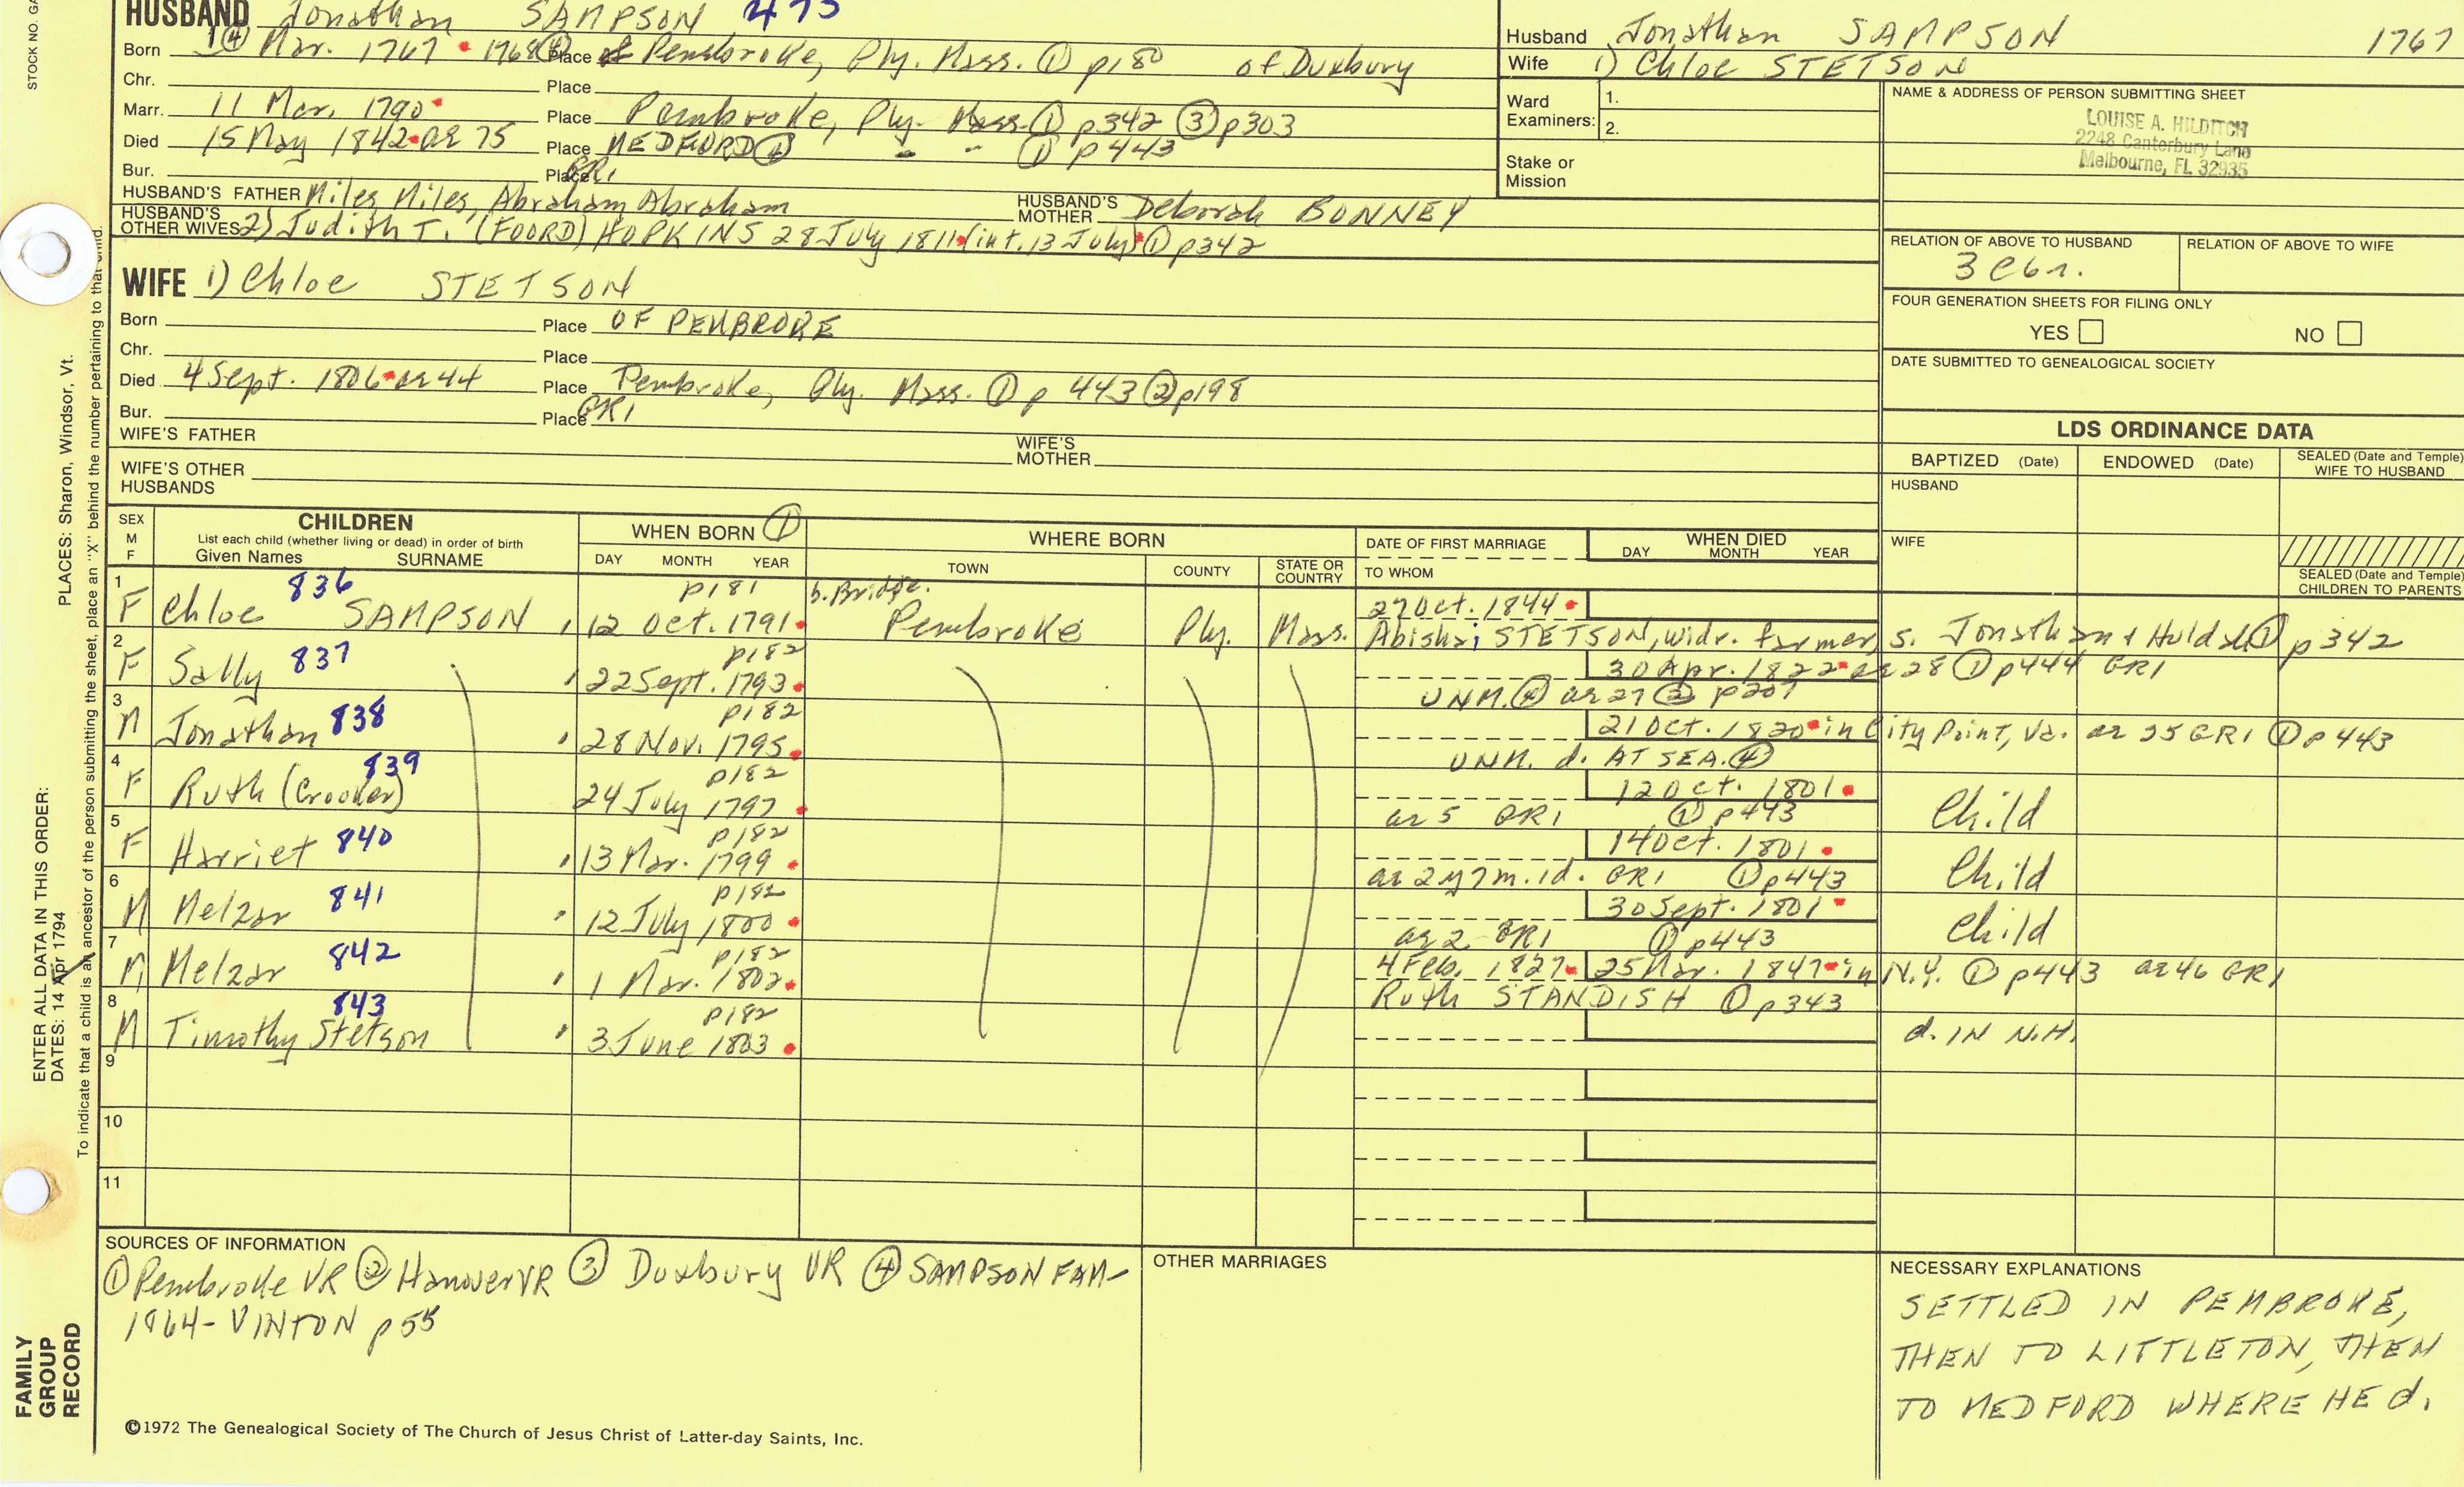 HUSBAND Jonathan SAMPSON 473
Born 1④ Mar. 1767 • 1768④ Place of Pembroke, Ply. Mass. ① p180 of Duxbury
Chr. Place
Marr. 11 Mar. 1790 • Place Pembroke, Ply. Mass. ① p342 ③ p303
Died 15 May 1842 • ae 75 Place MEDFORD④ " " ① p443
Bur. Place GR1
HUSBAND'S FATHER Miles Miles, Abraham Abraham HUSBAND'S MOTHER Deborah BONNEY
HUSBAND'S OTHER WIVES 2) Judith T. (FOORD) HOPKINS 28 July 1811 • (int. 13 July) • ① p342
WIFE 1) Chloe STETSON
Born Place OF PEMBROKE
Chr. Place
Died 4 Sept. 1806 • ae 44 Place Pembroke, Ply. Mass. ① p 443 ② p198
Bur. Place GR1
WIFE'S FATHER WIFE'S MOTHER
WIFE'S OTHER HUSBANDS
Husband Jonathan SAMPSON 1767
Wife 1) Chloe STETSON
Ward Examiners: 1.
2.
Stake or Mission
NAME & ADDRESS OF PERSON SUBMITTING SHEET
LOUISE A. HILDITCH
2248 Canterbury Lane
Melbourne, FL 32935
RELATION OF ABOVE TO HUSBAND RELATION OF ABOVE TO WIFE
3 C6r.
FOUR GENERATION SHEETS FOR FILING ONLY
YES NO
DATE SUBMITTED TO GENEALOGICAL SOCIETY
LDS ORDINANCE DATA
BAPTIZED (Date) ENDOWED (Date) SEALED (Date and Temple) WIFE TO HUSBAND
HUSBAND
WIFE
SEALED (Date and Temple) CHILDREN TO PARENTS
SEX M F CHILDREN
List each child (whether living or dead) in order of birth
Given Names SURNAME
WHEN BORN ①
DAY MONTH YEAR
WHERE BORN
TOWN COUNTY STATE OR COUNTRY
DATE OF FIRST MARRIAGE
TO WHOM
WHEN DIED
DAY MONTH YEAR
1 836 p181 b. Bridge. 27 Oct. 1844 •
F Chloe SAMPSON 12 Oct. 1791 • Pembroke Ply. Mass. Abishai STETSON, widr. farmer, s. Jonathan & Huldah ① p342
2 837 p182 30 Apr. 1822 • ae 28 ① p444 GR1
F Sally 22 Sept. 1793 • UNM. ④ ae 27 ② p207
3 838 p182 21 Oct. 1820 • in City Point, Va. ae 25 GR1 ① p443
M Jonathan 28 Nov. 1795 • UNM. d. AT SEA. ④
4 839 p182 12 Oct. 1801 •
F Ruth (Crooker) 24 July 1797 • ae 5 GR1 ① p443 Child
5 840 p182 14 Oct. 1801 •
F Harriet 13 Mar. 1799 • ae 2 y 7 m. 1d. GR1 ① p443 Child
6 841 p182 30 Sept. 1801 •
M Melzar 12 July 1800 • ae 2 GR1 ① p443 Child
7 842 p182 4 Feb. 1827 • 25 Mar. 1847 • in N.Y. ① p443 ae 46 GR1
M Melzar 1 Mar. 1802 • Ruth STANDISH ① p343
8 843 p182
M Timothy Stetson 3 June 1803 • d. IN N.H.
9
10
11
SOURCES OF INFORMATION
① Pembroke VR ② Hanover VR ③ Duxbury VR ④ SAMPSON FAM-
1964- VINTON p55
OTHER MARRIAGES
NECESSARY EXPLANATIONS
SETTLED IN PEMBROKE,
THEN TO LITTLETON, THEN
TO MEDFORD WHERE HE d.
©1972 The Genealogical Society of The Church of Jesus Christ of Latter-day Saints, Inc.
STOCK NO. GA
PLACES: Sharon, Windsor, Vt.
ENTER ALL DATA IN THIS ORDER:
DATES: 14 Apr 1794
To indicate that a child is an ancestor of the person submitting the sheet, place an "X" behind the number pertaining to that child.
FAMILY
GROUP
RECORD